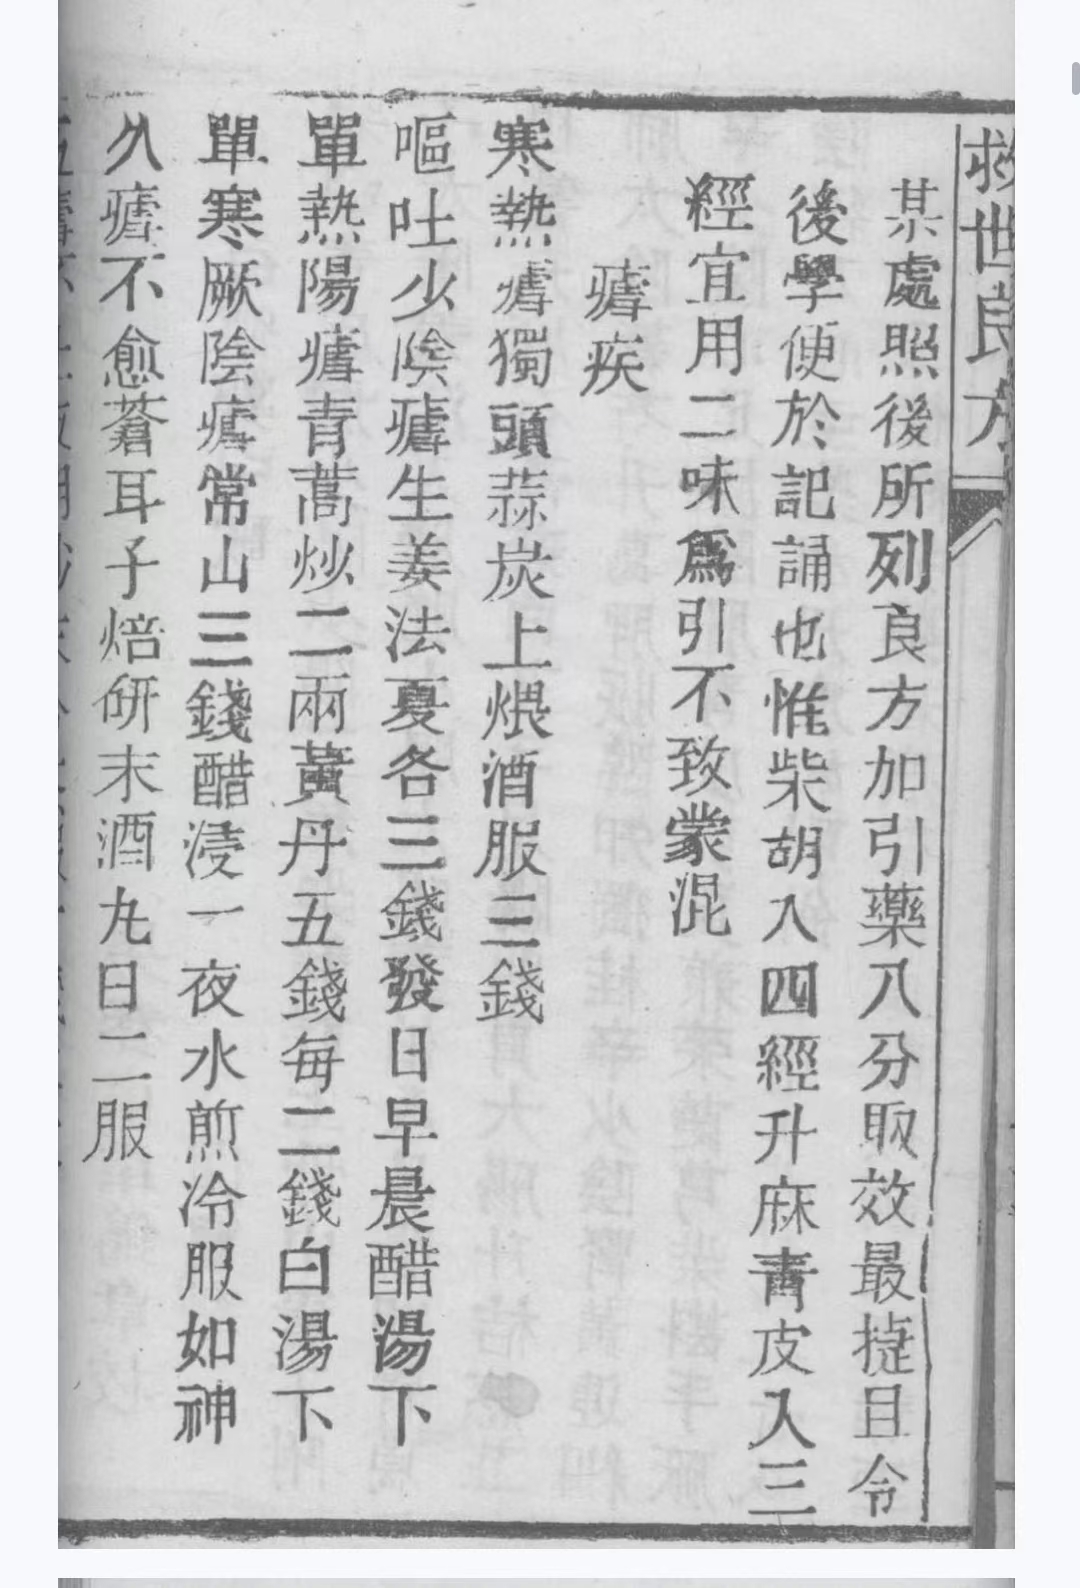 救世良方
某處照後所列良方加引藥八分取效最㨗且令
後學便於記誦也惟柴胡入四經升麻青皮入三
經宜用二味爲引不致蒙混
瘧疾
寒熱瘧獨頭蒜炭上煨酒服三錢
嘔吐少陰瘧生姜法夏各三錢發日早晨醋湯下
單熱陽瘧青蒿炒二兩黃丹五錢每二錢白湯下
單寒厥陰瘧常山三錢醋浸一夜水煎冷服如神
久瘧不愈蒼耳子焙研末酒丸日二服